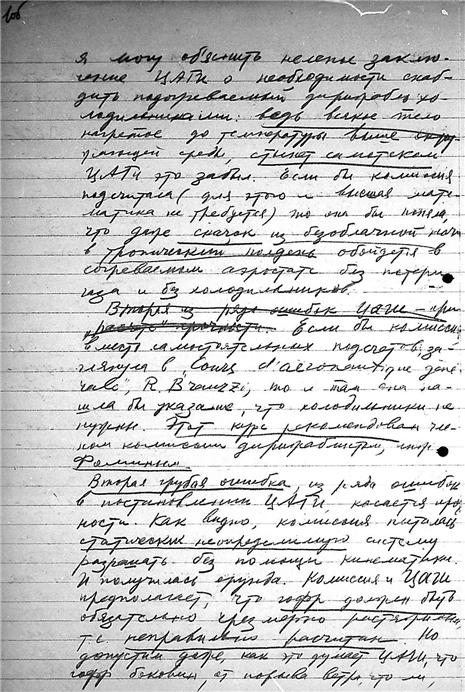 106
я могу объяснить нелепое заклю-
чение ЦАГИ о необходимости снаб-
дить подогреваемый дирижабль хо-
лодильниками: ведь всякое тело
нагретое до температуры выше окру-
жающей среды, стынет самотеком
ЦАГИ это забыл. Если бы комиссия
подсчитала (для этого и высшая мате-
матика не требуется) то она бы поняла,
что даже скачок из безоблачной ночи
в тропический полдень обойдется в
согреваемом аэростате без потери
газа и без холодильников.
Вторая из ряда ошибок ЦАГИ – при
расчете прочности. Если бы комиссия
вместо самостоятельных подсчетов за-
глянула в "Cours d'aeronautique gene-
rale", R. то и там она на-
шла бы указание, что холодильники не
нужны. Этот курс рекомендован чле-
ном комиссии дирижаблистом, инж.
Фоминым.
Вторая грубая ошибка, из ряда ошибок
в постановлении ЦАГИ, касается проч-
ности. Как видно, комиссия пыталась
статически неопределимую систему
разрешать без помощи кинематики.
И получилась ерунда. Комиссия и ЦАГИ
предполагает, что гофр должен быть
обязательно чрезмерно
т.е. неправильно расчитан. Но
допустим даже, как это думает ЦАГИ, что
гофр боковин, от порыва ветра, что ли,